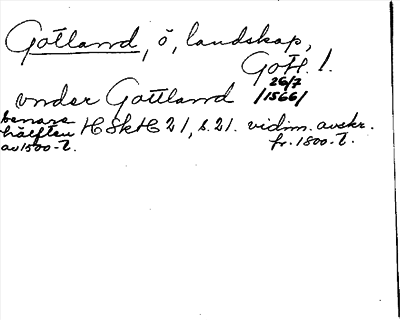 Gotland, ö, landskap,
Gotl. l.
vnder Gottland 26/7 /1566/
senare hälften av 1500-t. HSkH 21, s. 21. vidim. avskr. fr. 1800-t.